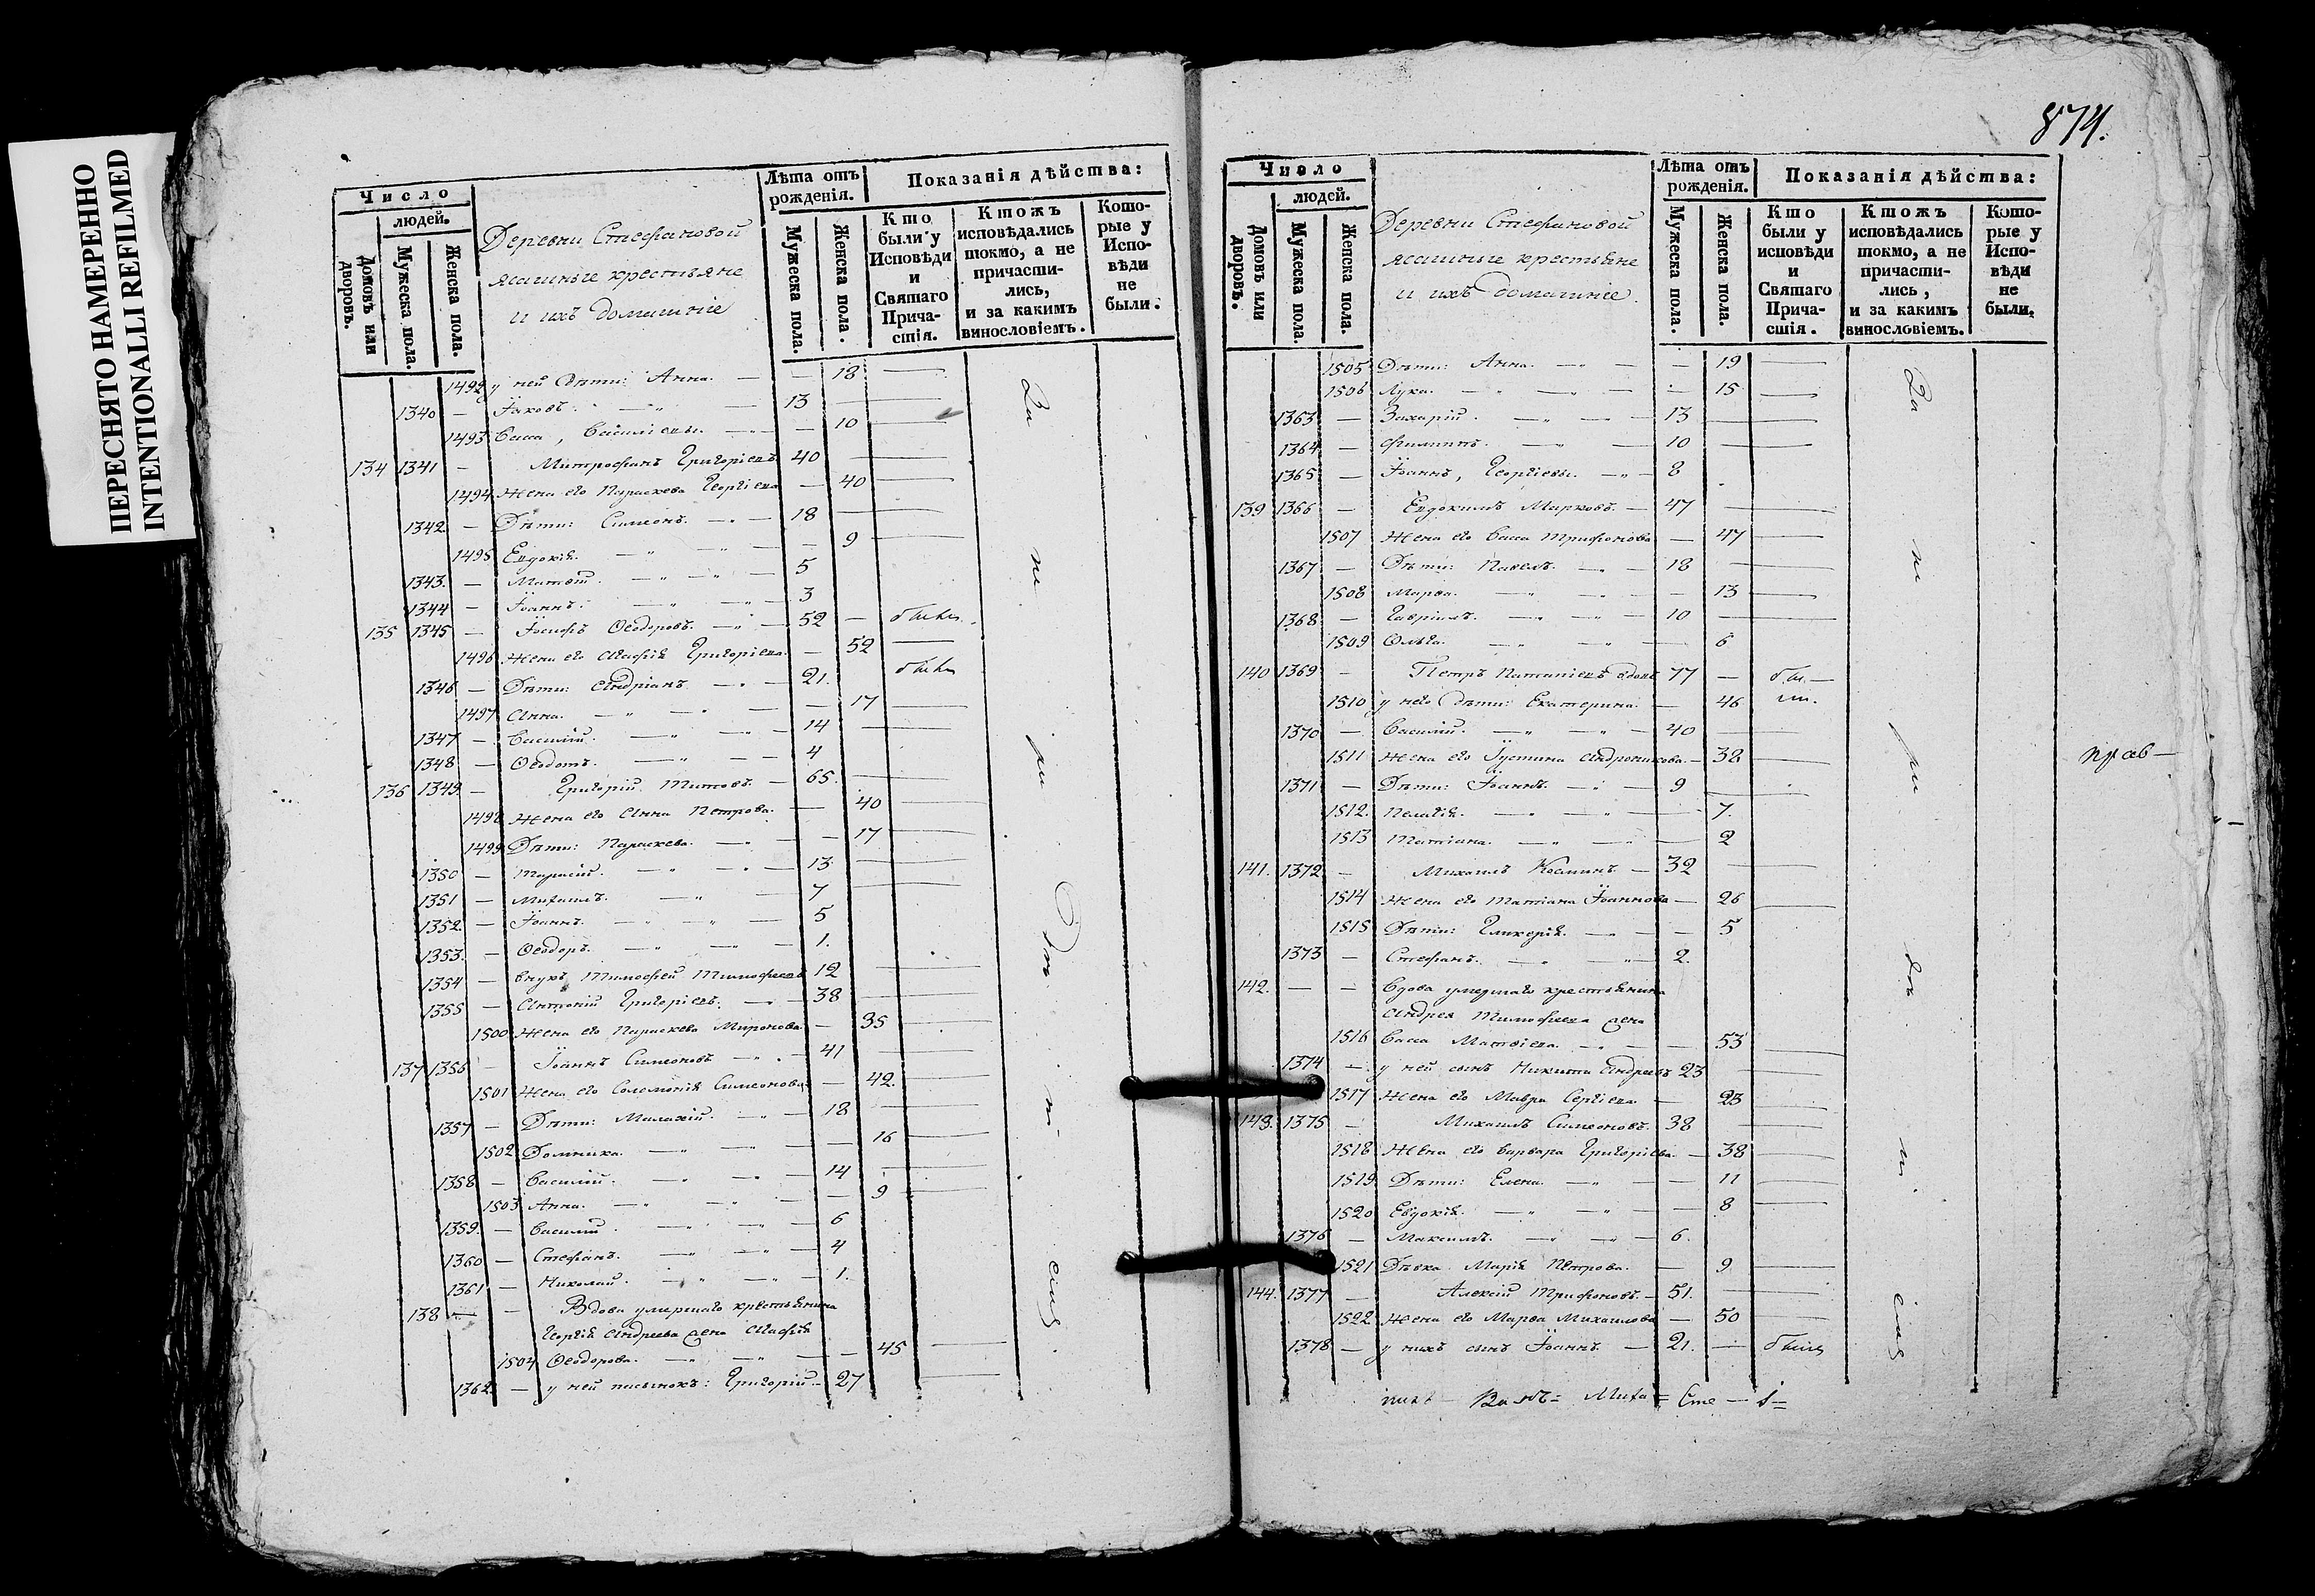 ПЕРЕСНЯТО НАМЕРЕННО
INTENTIONALLI REFILMED
Число
людей.
Домовъ или дворовъ.
Мужеска пола.
Женска пола.
Деревни Стефановой
ясашные крестьяне
и ихъ домашніе
Лѣта отъ рожденія.
Мужеска пола.
Женска пола.
Показанія дѣйства:
Кто были у Исповѣди и Святаго Причастія.
Ктожъ исповѣдались токмо, а не причастились, и за какимъ винословіемъ.
Которые у Исповѣди не были.
1492 у ней дѣти: Анна. — — 18 —
1340 — Іаковъ. — 13 —
1493 Васса, Василіевы. — — 10 —
134 1341 — Митрофанъ Григоріевъ 40 —
1494 Жена его Параскева Георгіева — 40 —
1342 — Дѣти: Симеонъ. — 18 —
1495 Евдокія. — — 9 —
1343. — Матѳей. — 5
1344 — Іоаннъ. — 3
135 1345 — Іосифъ Ѳеодоровъ. — 52 — были.
1496 Жена его Агафія Григоріева. — 52 —
1346 — Дѣти: Андріанъ — 21. были
1497 Анна. — — 17 —
1347 — Василій. — 14 —
1348 — Ѳеодотъ. — 4
136 1349. — Григорій Титовъ. — 65. —
1498 Жена его Анна Петрова. — 40 —
1499 Дѣти: Параскева. — — 17 —
1350 — Тарасій. — 13 —
1351 — Михаилъ. — 7 —
1352 — Іоаннъ. — 5
1353. — Ѳеодоръ. — 1.
1354 — внукъ Тимофей Тимофеевъ 12 —
1355 — Антоній Григоріевъ. — 38 —
1500 Жена его Параскева Миронова — 35 —
137 1356 — Іоаннъ Симеоновъ — 41 —
1501 Жена его Соломонія Симеонова — 42. —
1357 — Дѣти: Малахій. — 18 —
1502 Домника. — — 16 —
1358 — Василій. — 14 —
1503 Анна. — — 9 —
1359. — Василій. — 6
1360 — Стефанъ. — 4
1361 — Николай. — 1.
138 — — Вдова умершаго крестьянина
Георгія Андреева жена Агафія
1504 Ѳеодорова. — — 45 —
1362 — у ней пасынокъ: Григорій — 27 —
За не ри т.
874.
Число
людей.
Домовъ или дворовъ.
Мужеска пола.
Женска пола.
Деревни Стефановой
ясашные крестьяне
и ихъ домашніе.
Лѣта отъ рожденія.
Мужеска пола.
Женска пола.
Показанія дѣйства:
Кто были у исповѣди и Святаго Причастія.
Ктожъ исповѣдались токмо, а не причастились, и за какимъ винословіемъ.
Которые у Исповѣди не были.
1505 Дѣти: Анна. — — 19 —
1506 Лука. — — 15 —
1363 — Захарій. — 13 —
1364 — Филиппъ. — 10 —
1365 — Іоаннъ, Георгіевы. — 8
139 1366 — Евдокимъ Марковъ. — 47 —
1507 Жена его Васса Трифонова — 47 —
1367 — Дѣти: Павелъ. — 18 —
1508 Марѳа. — — 13 —
1368 — Гавріилъ. — 10 —
1509 Ольга. — — 6
140 1369 — Петръ Потапіевъ вдовъ 77 — бы —
1510 у него дѣти: Екатерина. — 46 ли.
1370 — Василій. — 40 —
1511 Жена его Іустина Андроникова. — 38 —
1371 — Дѣти: Іоаннъ. — 9 —
1512. Пелагія. — — 7.
1513 Татіана. — — 2
141. 1372. — Михаилъ Косминъ — 32 —
1514 Жена его Татіана Іоаннова — 26 —
1515 Дѣти: Гликерія. — — 5
1373 — Стефанъ. — 2.
142. — — Вдова умершаго крестьянина
Андрея Тимофеева жена
1516 Васса Матвіева. — — 53 —
1374 — у ней сынъ Никита Андреевъ 23 —
1517 Жена его Мавра Сергіева — 23 —
143. 1375 — Михаилъ Симеоновъ. 38 —
1518 Жена его Варвара Григоріева. — 38 —
1519. Дѣти: Елена. — — 11 —
1520 Евдокія. — — 8 —
1376 — Максимъ. — 6.
1521 Дѣвка Марія Петрова. — 9 —
144. 1377 — Алексій Трифоновъ. — 51. —
1522 Жена его Марѳа Михаилова — 50 —
1378 — у нихъ сынъ Іоаннъ. — 21. — были
За не ри дѣ т.
прав —